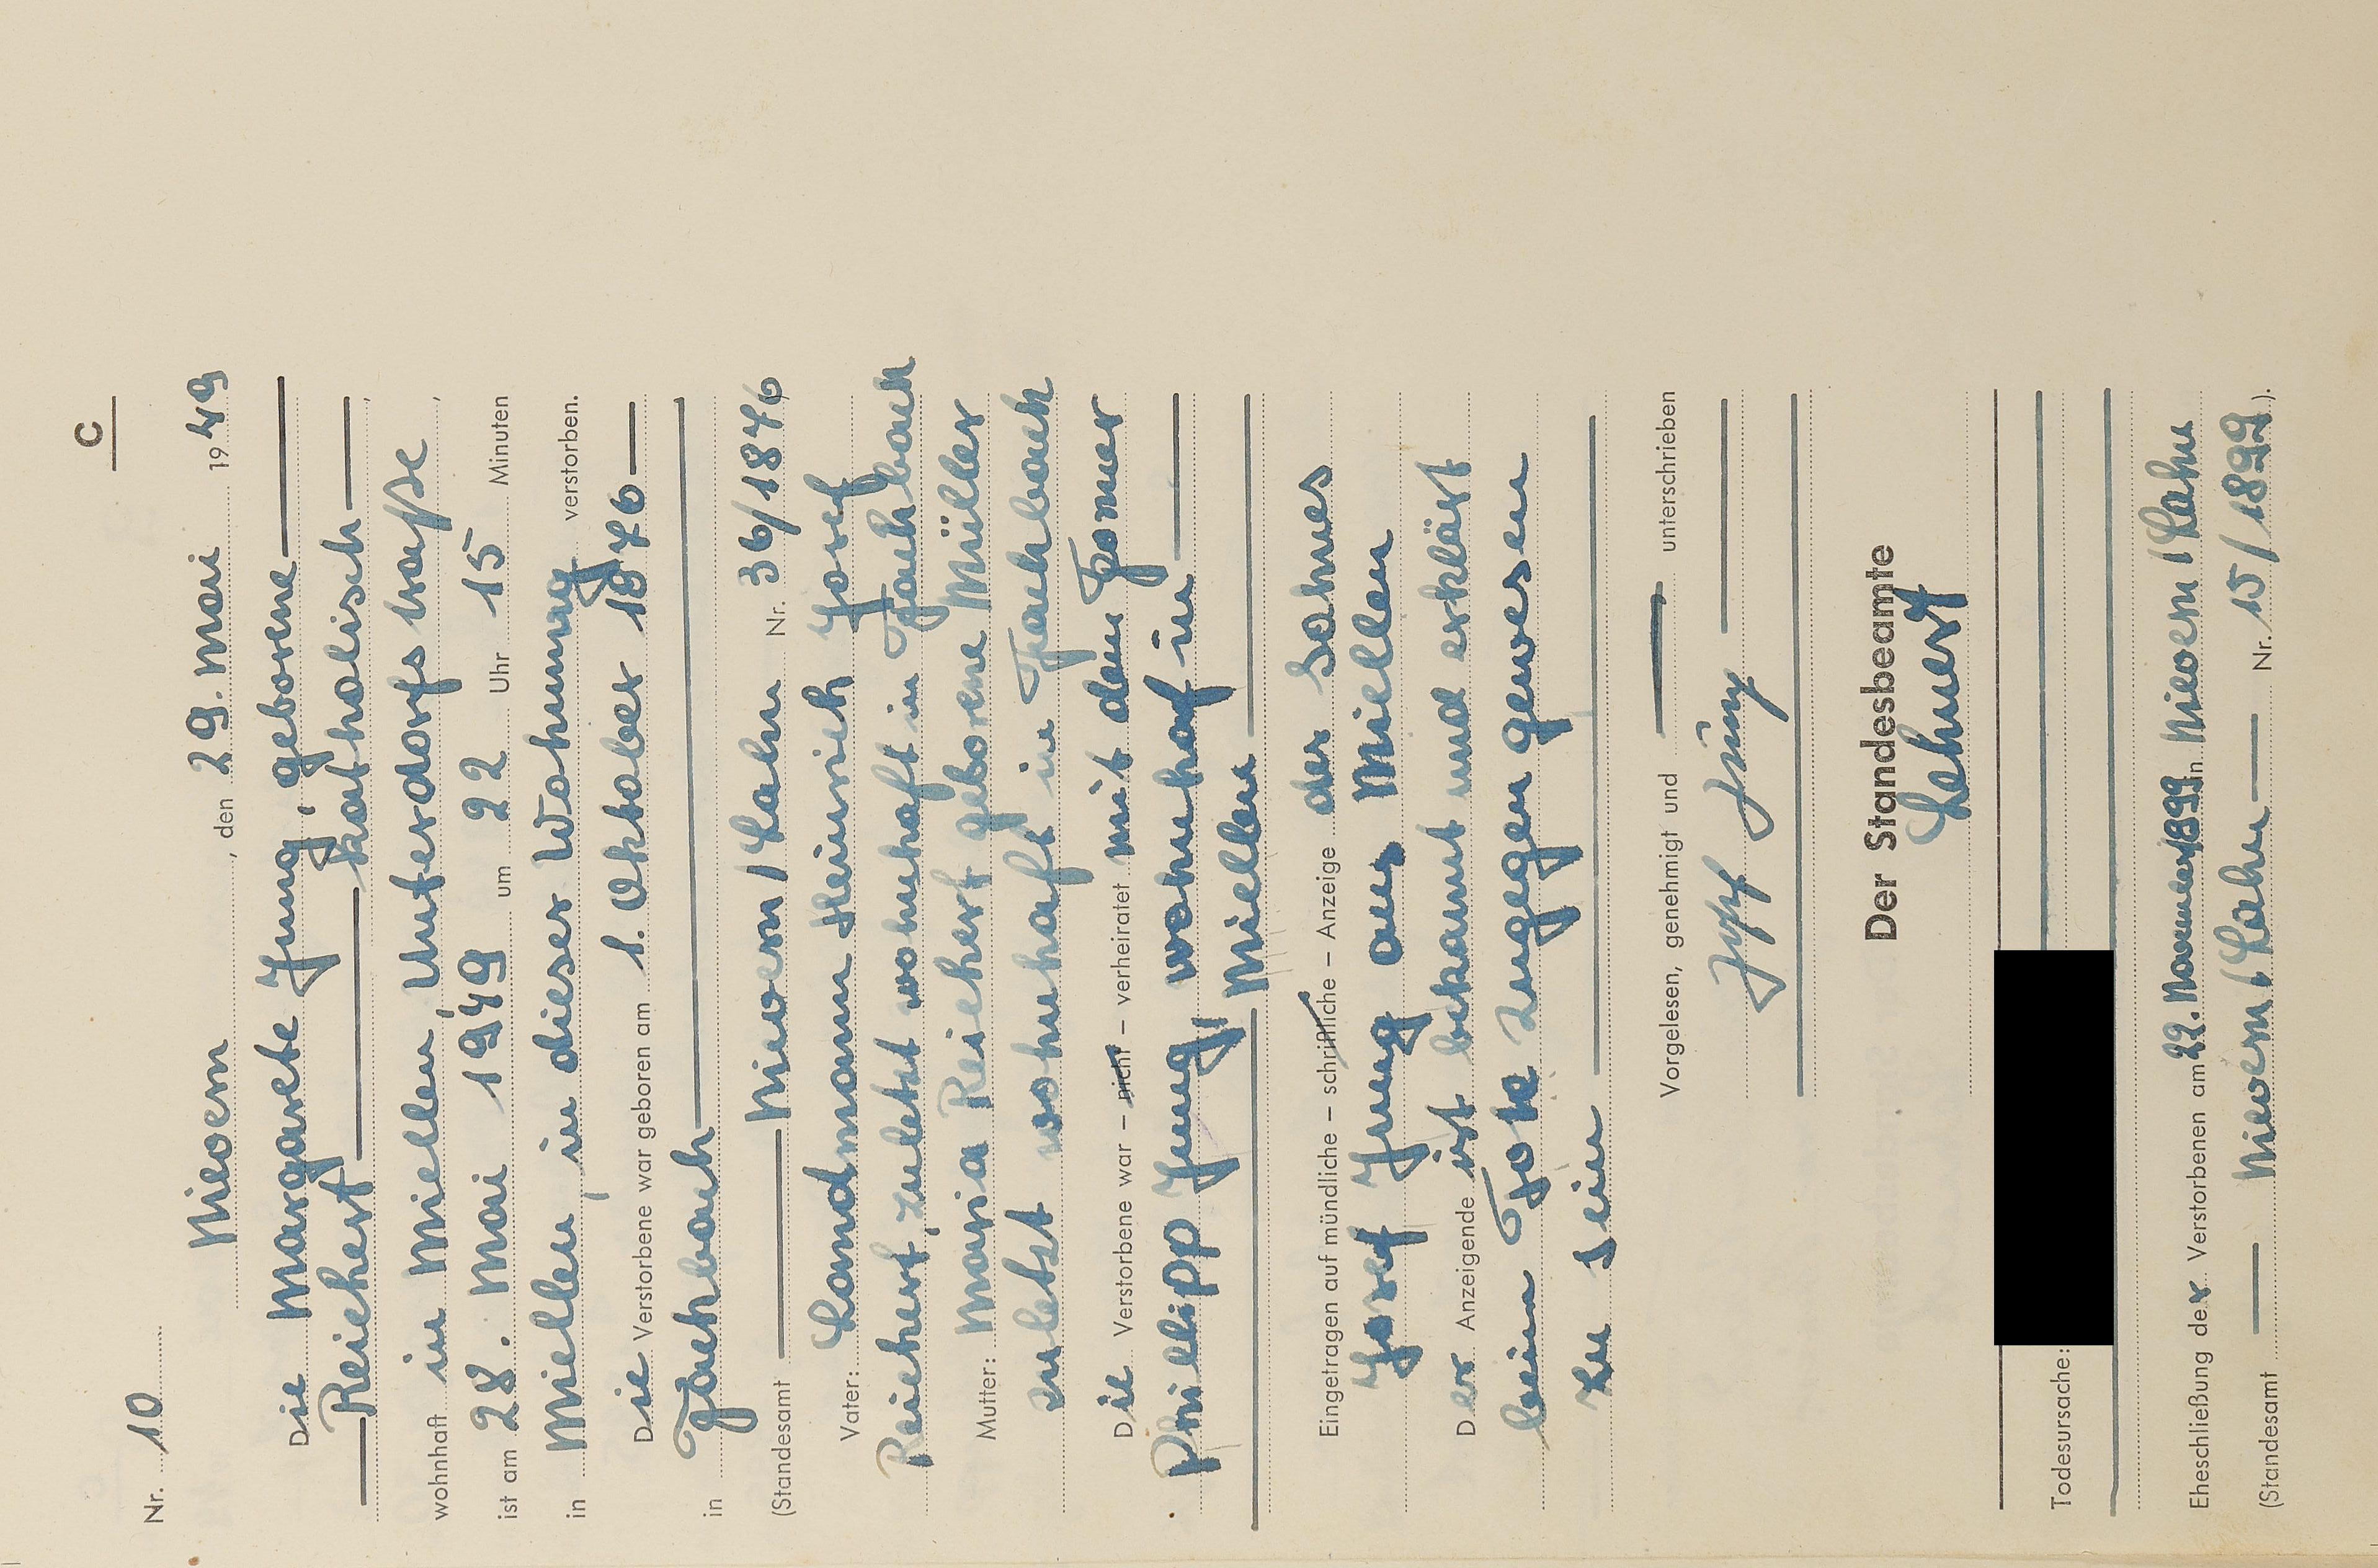 C
Nr. 10
Nievern, den 29. Mai 1949
Die Margarete Jung, geborene
Reichert katholisch
wohnhaft in Miellen, Unterdorfstraße
ist am 28. Mai 1949 um 22 Uhr 15 Minuten
in Miellen, in dieser Wohnung verstorben.
Die Verstorbene war geboren am 1. Oktober 1876
in Fachbach
(Standesamt Nievern/Lahn Nr. 36/1876
Vater: Landmann Heinrich Josef
Reichert, zuletzt wohnhaft in Fachbach
Mutter: Maria Reichert geborene Müller
zuletzt wohnhaft in Fachbach
Die Verstorbene war – nicht – verheiratet mit dem Former
Phillipp Jung, wohnhaf in
Miellen
Eingetragen auf mündliche – schriftliche – Anzeige des Sohnes
Josef Jung aus Miellen
Der Anzeigende ist bekannt und erklärt
beim Tote zugegen gewesen
zu sein
Vorgelesen, genehmigt und unterschrieben
Josef Jung
Der Standesbeamte
Lehnert
Todesursache:
Eheschließung der Verstorbenen am 22. November 1899 in Nievern/Lahn
(Standesamt Nievern/Lahn Nr. 15/1899).